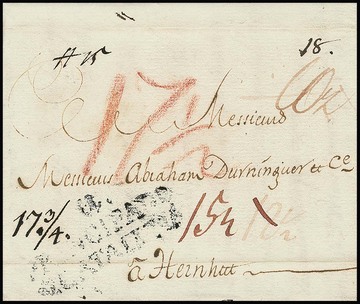 # 15
18.
17½
60x
Messieurs
Messieurs Abraham Durninguer et Ce
17¾.
15½ x
à Hernhutt